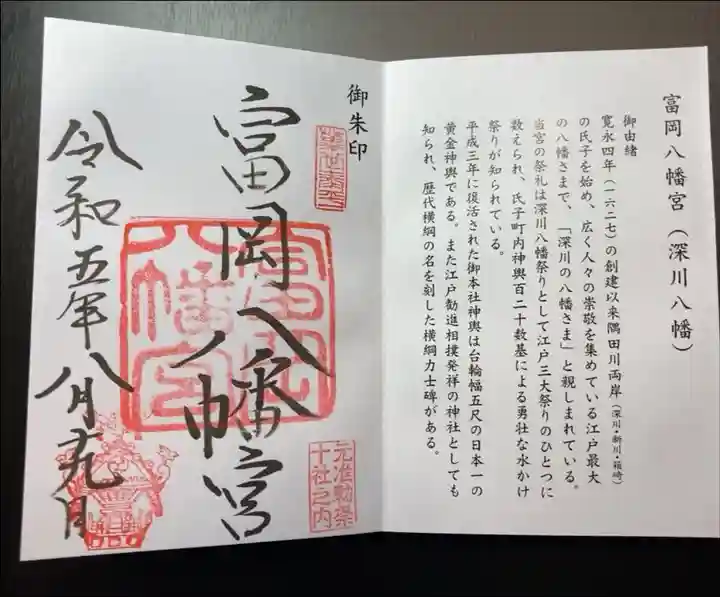 富岡八幡宮（深川八幡）
御由緒
寛永四年（一六二七）の創建以来隅田川両岸（深川・新川・箱崎）
の氏子を始め、広く人々の崇敬を集めている江戸最大
の八幡さまで、「深川の八幡さま」と親しまれている。
当宮の祭礼は深川八幡祭りとして江戸三大祭りのひとつに
数えられ、氏子町内神輿百二十数基による勇壮な水かけ
祭りが知られている。
平成三年に復活された御本社神輿は台輪幅五尺の日本一の
黄金神輿である。また江戸勧進相撲発祥の神社としても
知られ、歴代横綱の名を刻した横綱力士碑がある。
御朱印
富岡八幡宮
富岡
八幡宮
元准勅祭
十社之内
令和五年八月